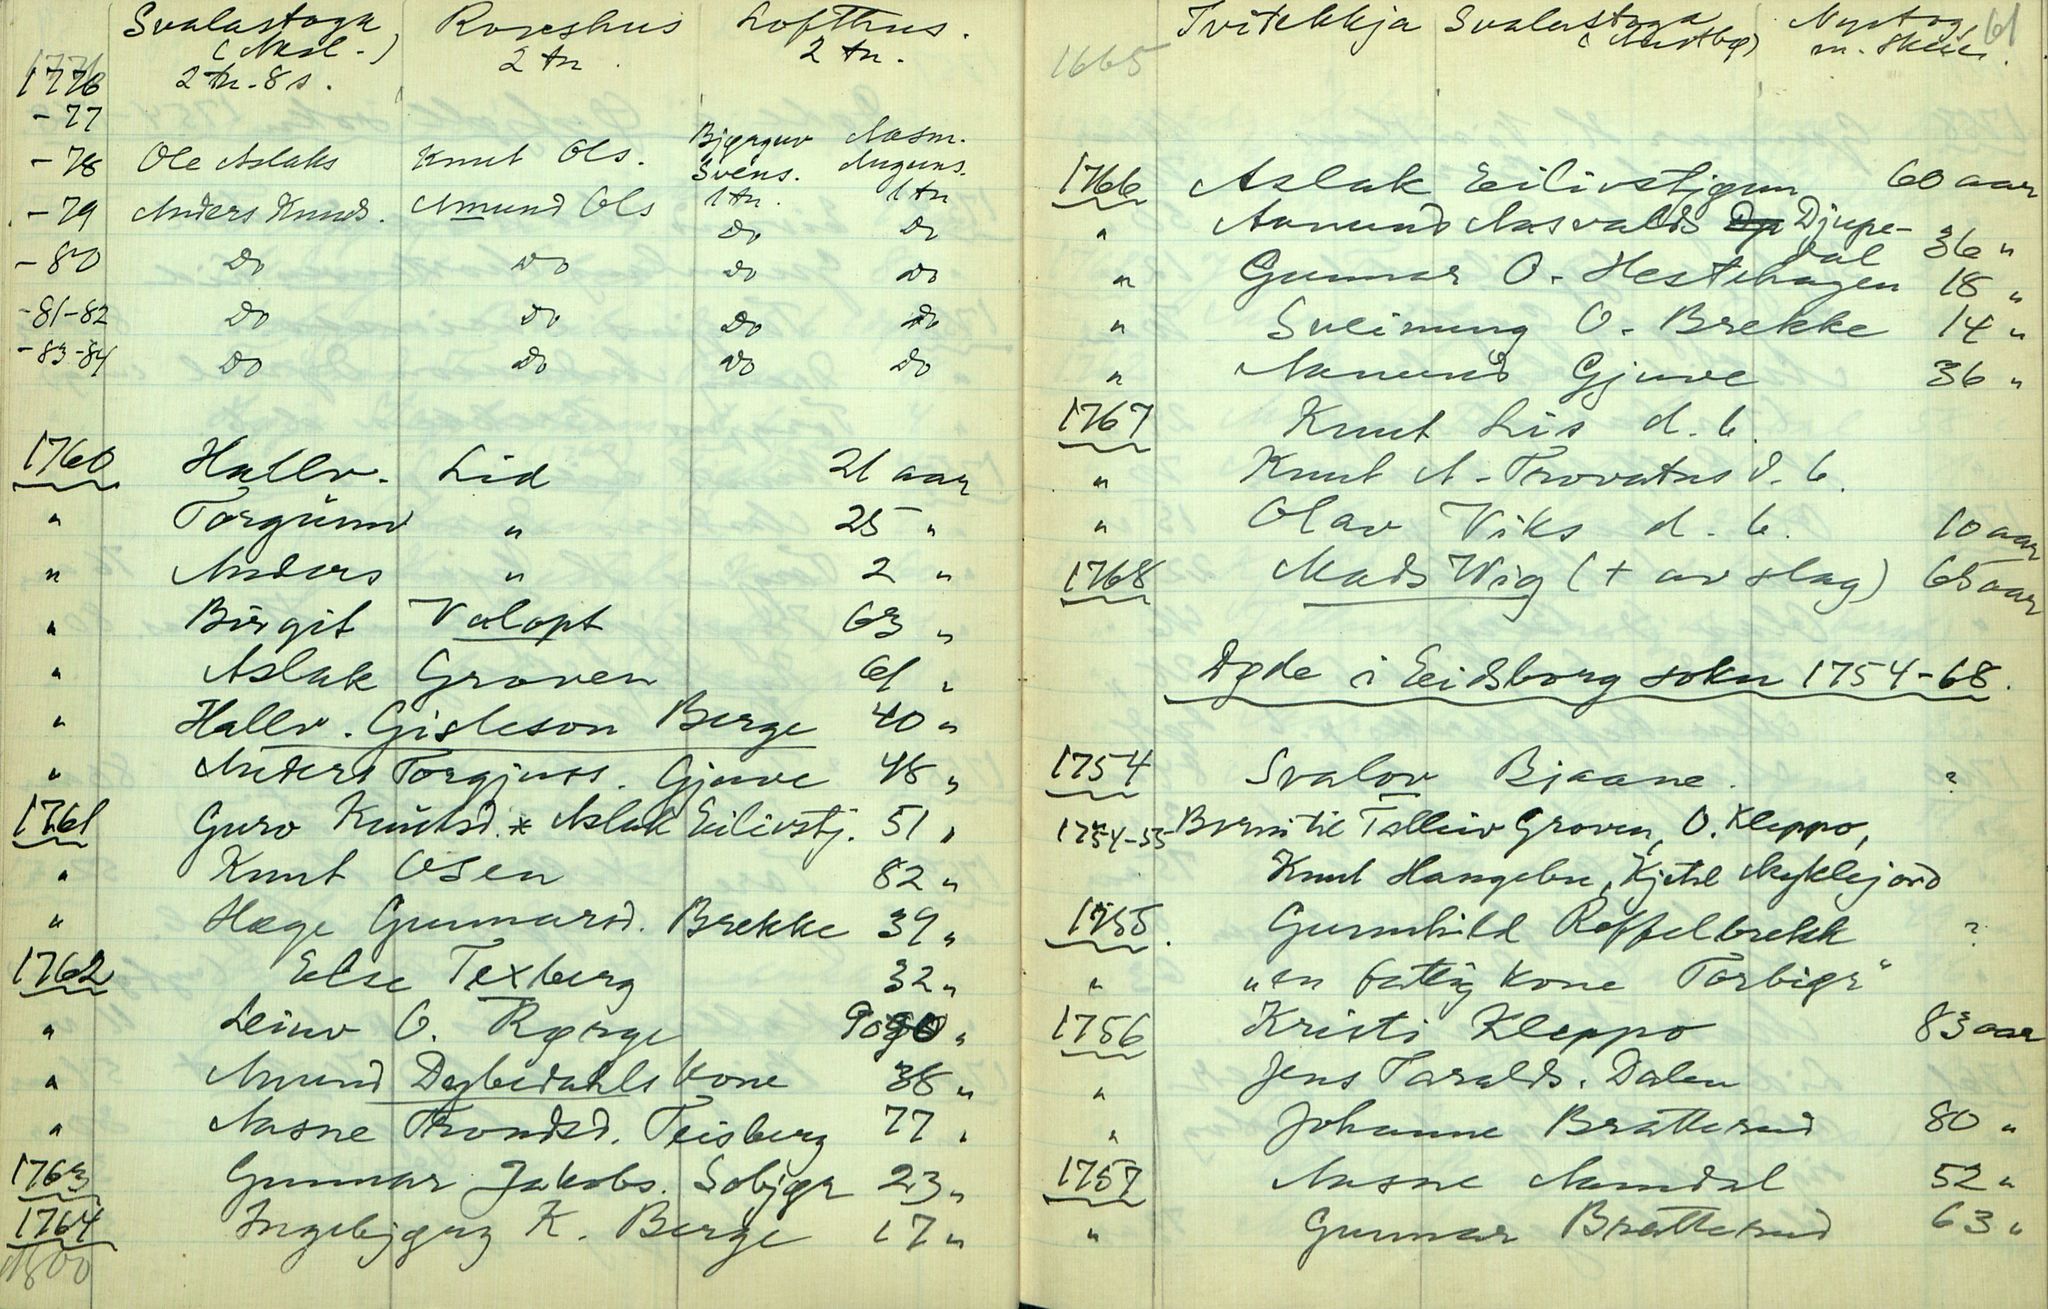 Svalastoga Roseshus Lofthus.
(Nesl.-) 2 tn. 2 tn.
1776 2 tn. 8 s.
- 77
- 78 Ole Aslaks Knut Ols. Bjørguv Svens. 1 tn. Aasm. Auguns. 1 tn
- 79 Anders Knuds. Amund Ols Do Do
- 80 Do Do Do Do
- 81-82 Do Do Do Do
- 83-84 Do Do Do Do
1760 Hallv. Lid 21 aar
" Torgunn " 25 "
" Anders " 2 "
" Birgit Valopt 63 "
" Aslak Groven 61 "
" Hallv. Gisleson Berge 40 "
" Anders Torgjuss. Gjuve 48 "
1761 Guro Knutsd. * Aslak Eilivstj. 51 "
" Knut Osen 82 "
" Hæge Gunnarsd. Brekke 39 "
1762 Else Texberg 32 "
" Leiuv O. Rørge 90 "
" Amund Dybedahls kone 38 "
" Aasne Trondsd. Teisberg 77 "
1763 Gunnar Jakobs. 23 "
1764 Ingebjørg K. Berge 17 "
1800
61
1665 Tvitekkja Svalastoga Nystog
m. Skeie.
1766 Aslak Eilivstjønn 60 aar
" Aamund Aasvalds Djupe-
dal 36 "
" Gunnar O. Hestehagen 18 "
" Sveinung O. Brekke 14 "
" Aamund Gjuve 36 "
1767 Knut Lis d. b.
" Knut A. Trovatns d. b.
" Olav Viks d. b. 10 aar
1768 Mads Wig (+ av slag) 65 aar
Døde i Eidsborg sokn 1754-68.
1754 Svalov Bjaane. ?
1754-55 Born til Talleiv Groven, O. Kleppo,
Knut Haugebu, Kjetil Myklejord
1755. Gunnhild Roffelbrekk ?
" "en fattig kone Torbjør"
1756 Kristi Kleppo 83 aar
" Jens Taralds. Dalen
" Johanne Bratterud 80 "
1757 Aasne Aamdal 52 "
" Gunnar Bratterud 63 "